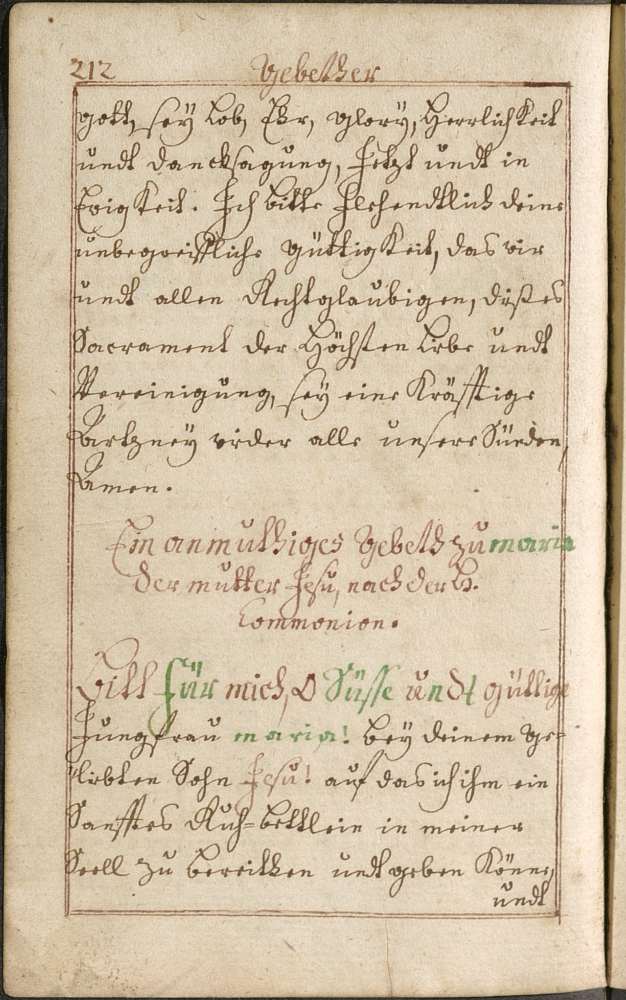 212 Gebether
gott, sey Lob, Ehr, glory, Herrlichkeit
undt dancksagung, Jetzt undt in
Ewigkeit. Ich bitte flehendtlich deine
unbegreiffliche güttigkeit, das wir
undt allen Rechtglaubigen, dises
Sacrament der Höchsten Liebe undt
Vereinigung, sey eine Kräfftige
Artzney wider alle unsere Sünden,
Amen.
Ein anmuthiges Gebeth zu maria
der mutter Jesu, nach der H.
Commonion.
Bitt für mich, O Süsse undt güttige
Jungfrau maria! bey deinem ge-
liebten Sohn Jesu! auf das ich ihm ein
Sanfftes Ruh-bettlein in meiner
Seell zu bereithen undt geben Könne,
undt